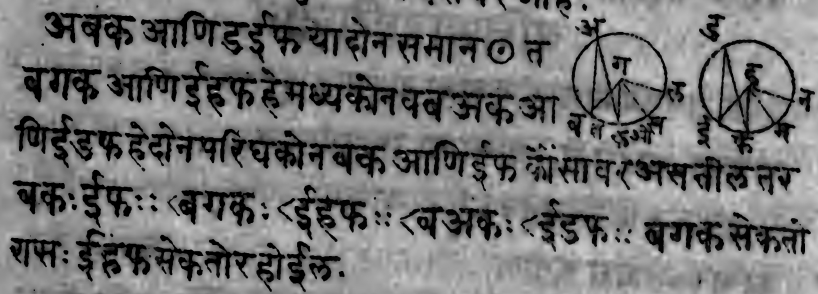 अबक आणि डईफ या दोन समान ⊙ त
बगक आणि ईहफ हे मध्यकोन व बअक आ
णि ईडफ हे दोन परिघकोन बक आणि ईफ कौंसावर असतील तर
बक : ईफ :: <बगक : <ईहफ :: <बअक : <ईडफ :: बगक सेकतो
रास : ईहफ सेकतोर होईल.
अ
ग
ल
ब
ड
ह
न
ई
म